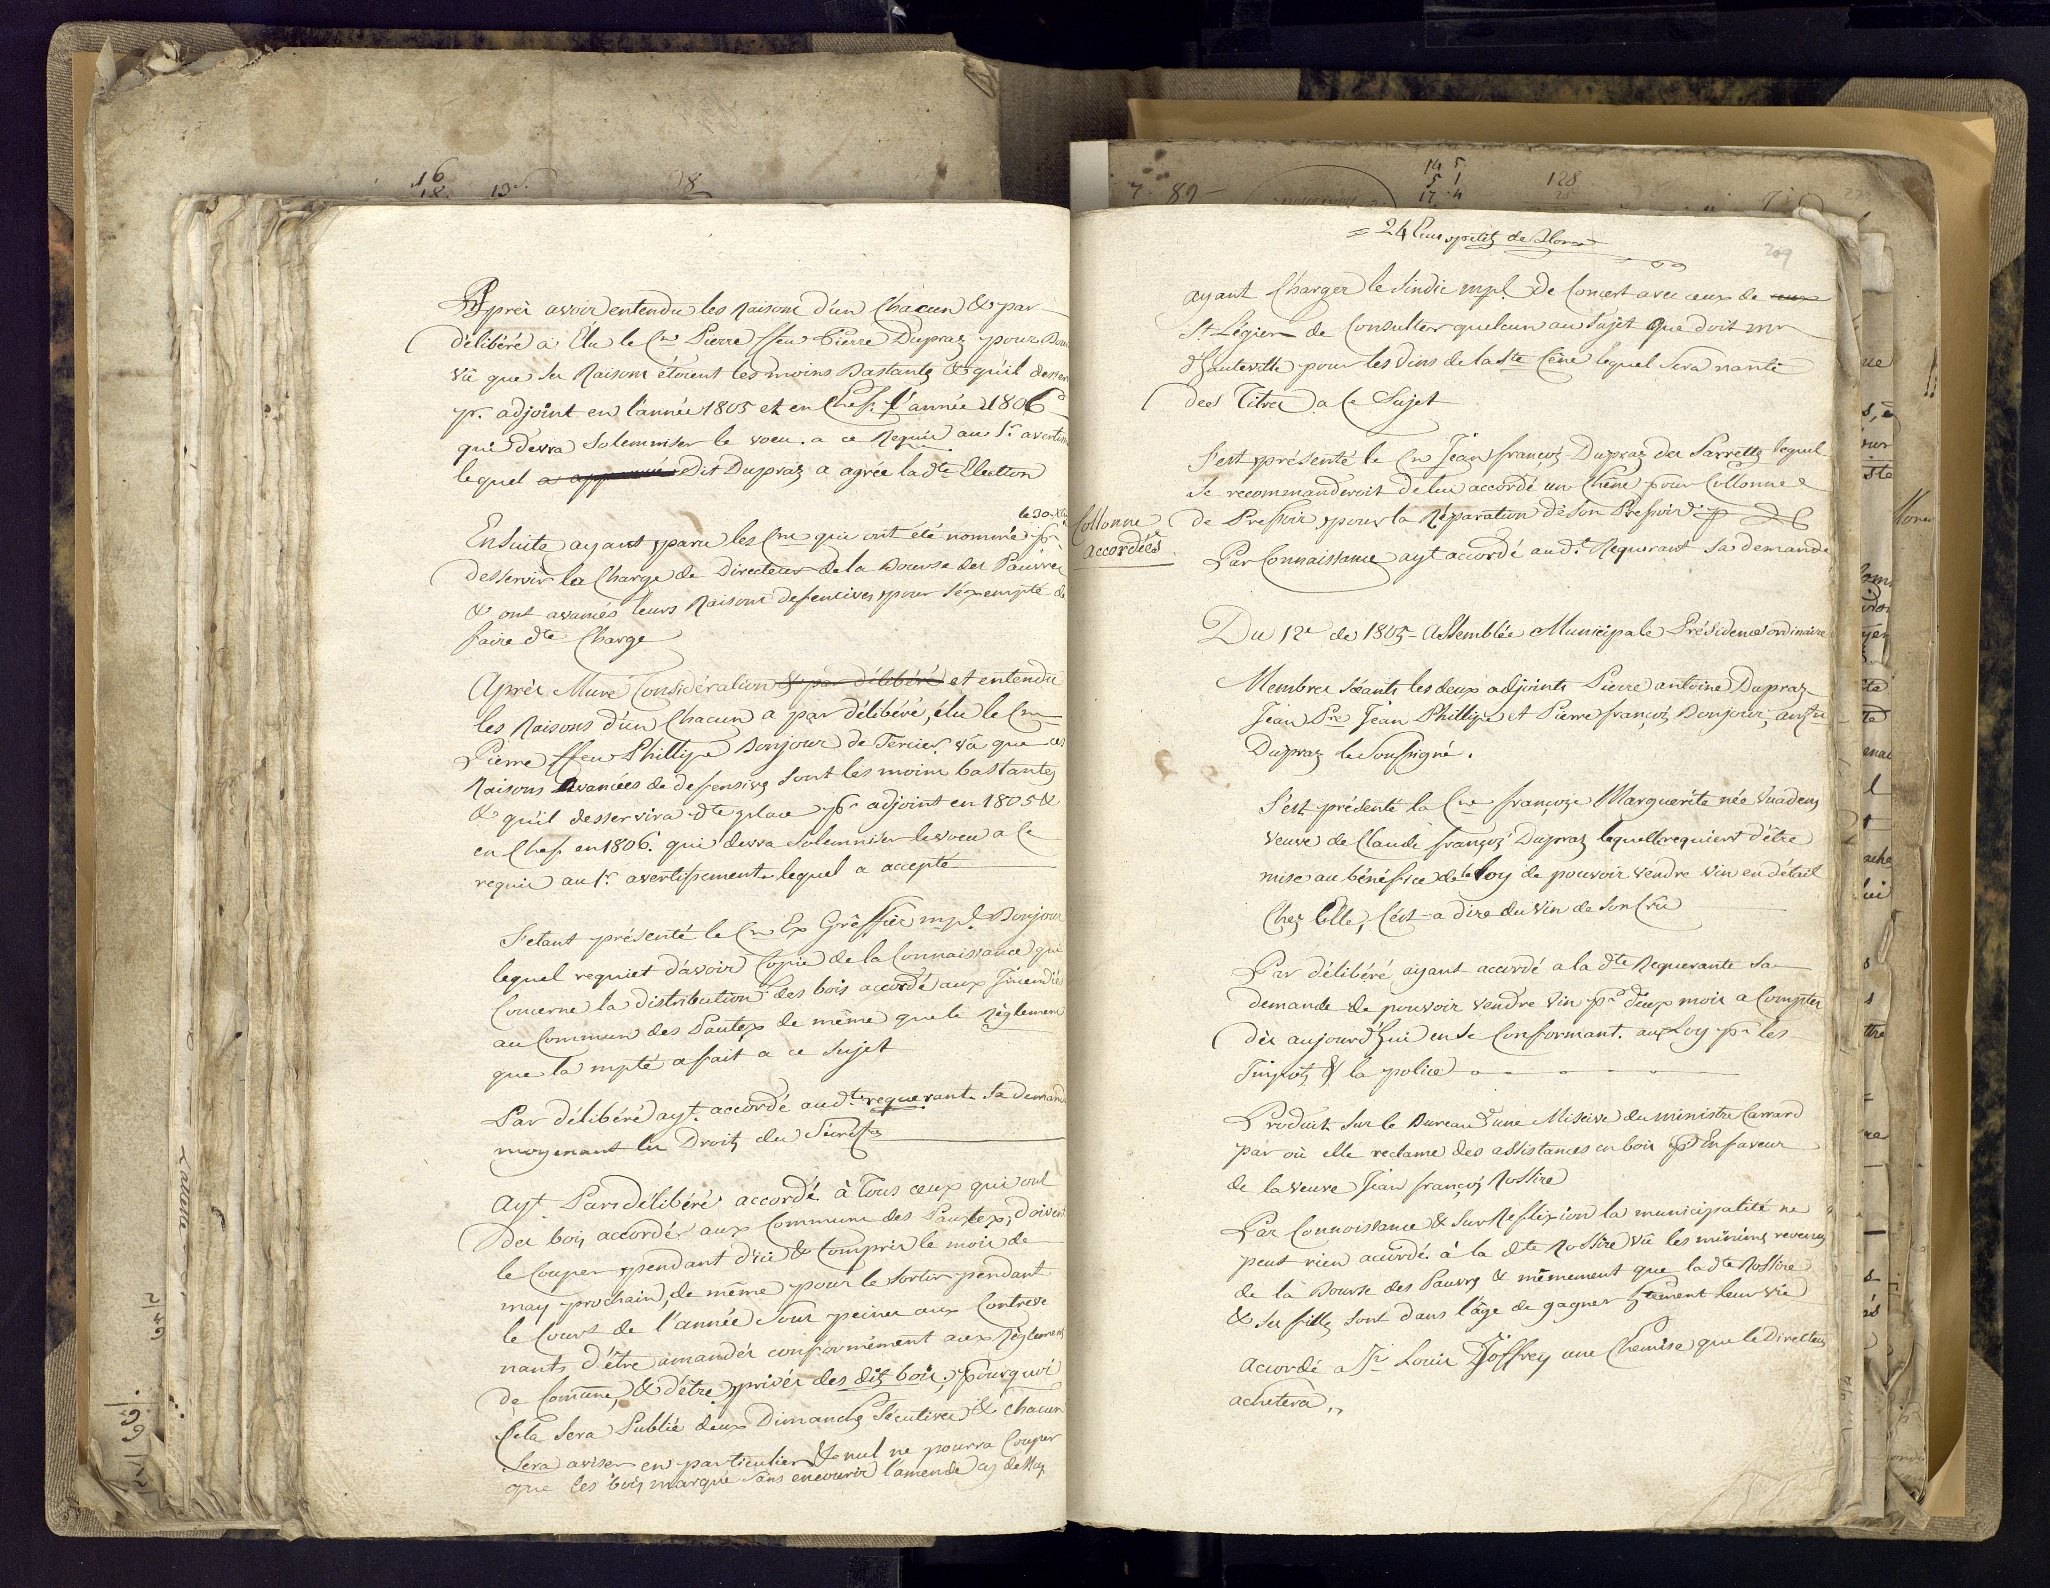 Après avoir entendu les Raisons d'un Chacun & par
délibéré a Élu le Cn Pierre ffeu Pierre Dupraz pour
vû que ses Raisons étoient les moins Bastantes & qu'il desser
pr. adjoint en l'année 1805 et en Chef. l'année 1806
qui devra Solemniser le voeu a ce Requis au 1r. avertis
lequel Dit Dupraz a agrée la dte Election
le 30
Ensuite ayant paru les Cns qui ont été nommé pr.
desservir la Charge de Directeur de la Bourse des Pauvres
& ont avancés leurs Raisons defencives pour s'éxempté de
faire dte Charge
Après Mure Considération & par délibéré et entendu
les Raisons d'un Chacun a par délibéré, élu le Cn
Pierre ffeu Phillipe Bonjour de Tercier vû que ces
Raisons Avancées de defensive sont les moins bastantes
& qu'il desservira dte place pr. adjoint en 1805 &
en Chef. en 1806. qui devra Solemniser le voeu a Ce
requis au 1r. avertissement lequel a accepté
S'etant présenté le Cn Ex Greffier mpl. Bonjour
lequel requiet d'avoir Copie de la Connaissance qui
Concerne la distribution des bois accordé aux Incendié
au Commun des Pautex de même que le Règlement
que la mpté a fait a ce sujet
Par délibéré ayt. accordé audt. requerant Sa demand
moyenant les Droits du Sécrét.
Ayt Par délibéré accordé à Tous ceux qui ont
des bois accordé aux Commune des Pautex, doivent
le Couper pendant d'ici & Compris le mois de
may prochain, de même pour le Sortir pendant
le Cours de l'année Sous peines aux Contreve
nants d'être amandés conformément aux Règlement
de Commune, & d'être privés des dits bois, Pourquoi
Cela Sera Publié deux Dimanches Sécutives & chacun
Sera aviser en particulier & nul ne pourra Couper
que les bois marqué Sans encourir l'amende cy dessus
16
18
13
28
14 5
5 1
17 4
128
7 89
= 24
209
ayant Charger le Sindic mpl. De Concert avec ceux de
St. Légier de Consulter quelcun au Sujet Que doit mr
d'Hauteville pour les vins de la Ste Cène lequel Sera nanti
des Titres a Ce Sujet
S'est présenté le Cn Jean françois Dupraz des Sarrettes lequel
Se recommanderoit de lui accordé un Chêne pour Collonne
de Pressoir pour la Réparation de Son Pressoir
Collonne
accordées
Par Connaissance ayt accordé audt. Requerant Sa demande
Du 12e de 1805 - Assemblée Municipale Présidence ordinaire
Membres Séants les deux adjoints Pierre antoine Dupraz
Jean Pre Jean Phillipe et Pierre françois Bonjour,
Dupraz le Soussigné.
S'est présenté la Cne françoise Marguerite née Vuadens
veuve de Claude françois Dupraz laquelle requiert d'être
mise au bénéfice de la loy de pouvoir vendre vin en détail
Chez Elle, C'est-a dire du vin de Son Cru
Par délibéré ayant accordé a la dte Requerante Sa
demande de pouvoir vendre vin pr. deux mois a Compter
dès aujourd'hui en se Conformant. aux Loy pr. les
Impots & la police
Produit Sur le Bureau une Missive du ministre Carrard
par où elle reclame des assistances en bois En faveur
de la veuve Jean françois Rossire
Par Connoissance & Sur Reflexion la municipalité ne
peut rien accordé à la dte Rossire vû les minimes revenus
de la Bourse des Pauvres & mêmement que la dte Rossire
& Ses filles sont dans l'âge de gagner leur vie
Accordé a Louis Joffrey une Chemise que le Directeur
achetera